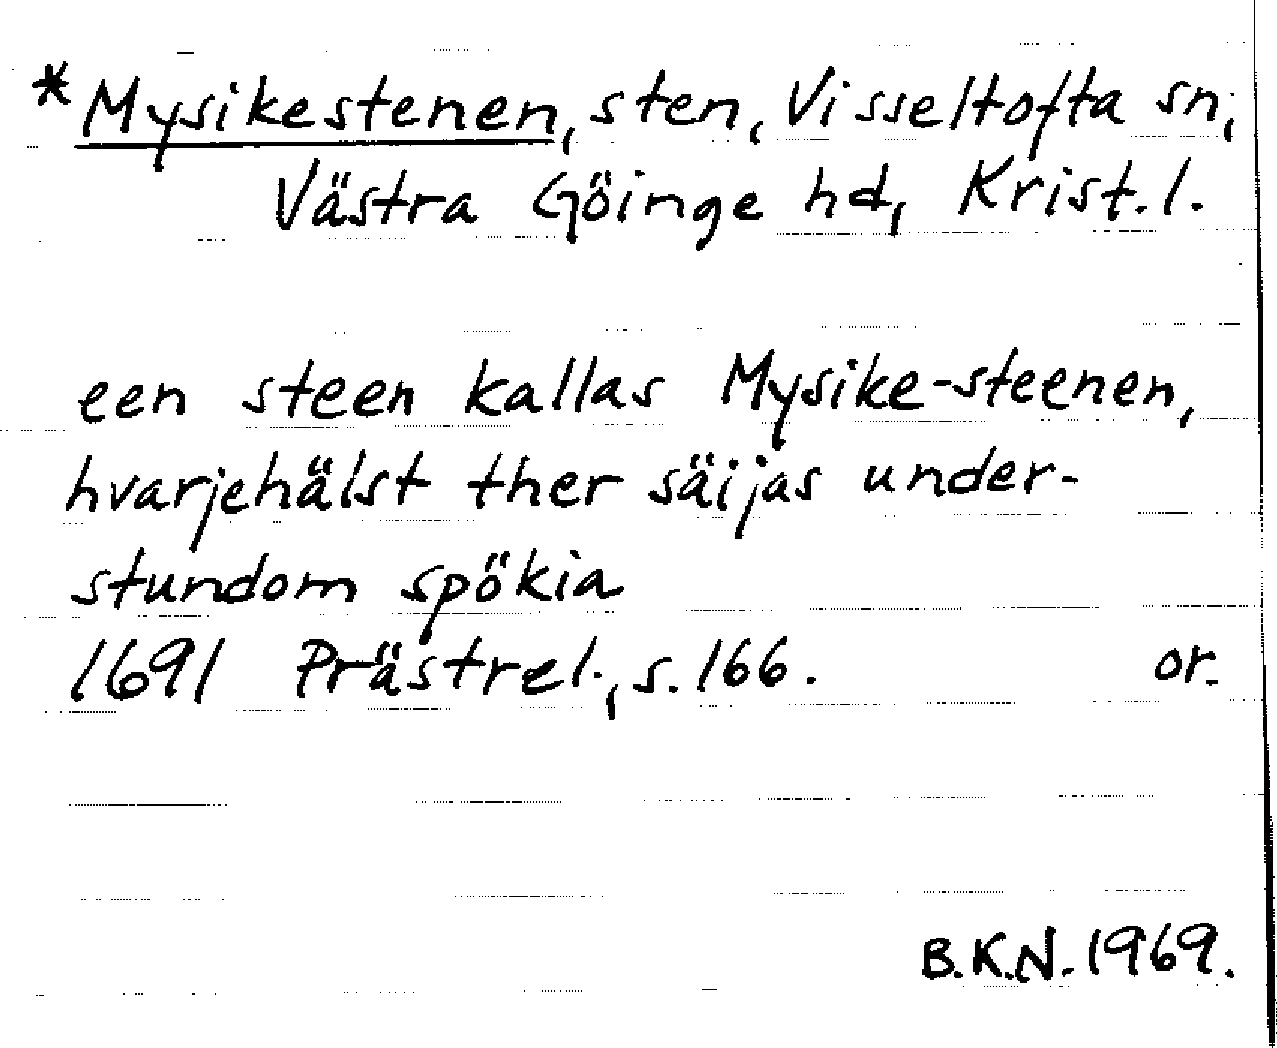 *Mysikestenen, sten, Visseltofta sn,
Västra Göinge hd, Krist. l.
een steen kallas Mysike-steenen,
hvarjehälst ther säijas under-
stundom spökia
1691 Prästrel., s. 166. or.
B.K.N. 1969.